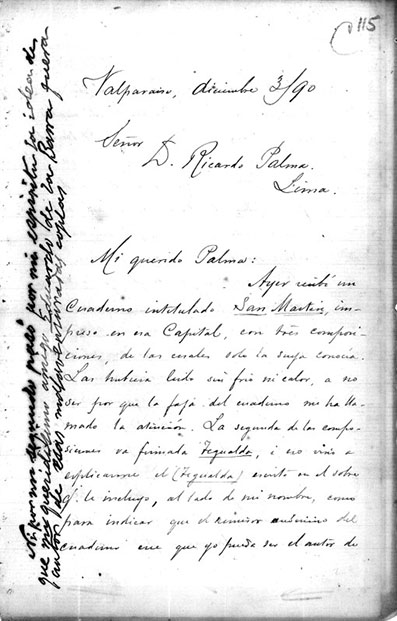 115
Valparaiso, diciembre 3/90
Señor
D. Ricardo Palma.
Lima.
Mi querido Palma:
Ayer recibí un
Cuaderno intitulado San Martin, im-
preso en esa Capital, con tres composi-
ciones, de las cuales solo la suya conocia.
Las hubiera leido sin frio ni calor, a no
ser por que la faja del cuaderno me ha lla-
mado la atencion. La segunda de las compo-
siciones va firmada Tegualda, i eso vino a
esplicarme el (Tegualda) escrito en el sobre
q. le incluyo, al lado de mi nombre, como
para indicar que el remisor anónimo del
cuaderno cree que yo pueda ser el autor de
Ni por un segundo pasó por mi espíritu la idea de
que mi queridísimo amigo Eduardo de la Barra fuera
autor de esas coplas